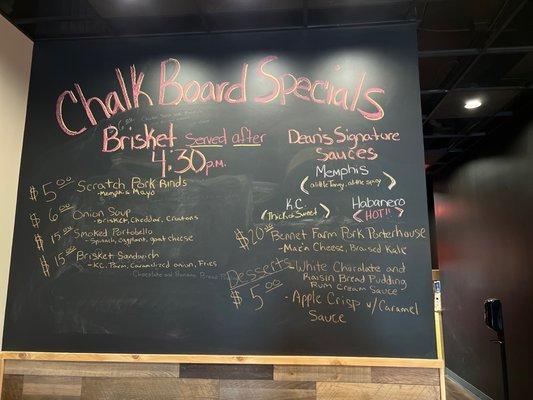 Chalk Board Specials
Brisket Served after
4:30 p.m.
$5.00 Scratch Pork Rinds
- Memphis Mayo
$6.00 Onion Soup
- Brisket, Cheddar, Croutons
$15.00 Smoked Portobello
- Spinach, Eggplant, goat cheese
$15.00 Brisket Sandwich
- K.C. Parm, Caramelized onion, Fries
Chocolate and Banana Bread
Dean's Signature
Sauces
Memphis
(a little Tangy, a little spicy)
K.C.
(Thick & Sweet)
Habanero
(HOT!!)
$20.00 Bennet Farm Pork Porterhouse
- Mac n Cheese, Braised Kale
Desserts
$5.00
- White Chocolate and
Raisin Bread Pudding
Rum Cream Sauce
- Apple Crisp w/ Caramel
Sauce